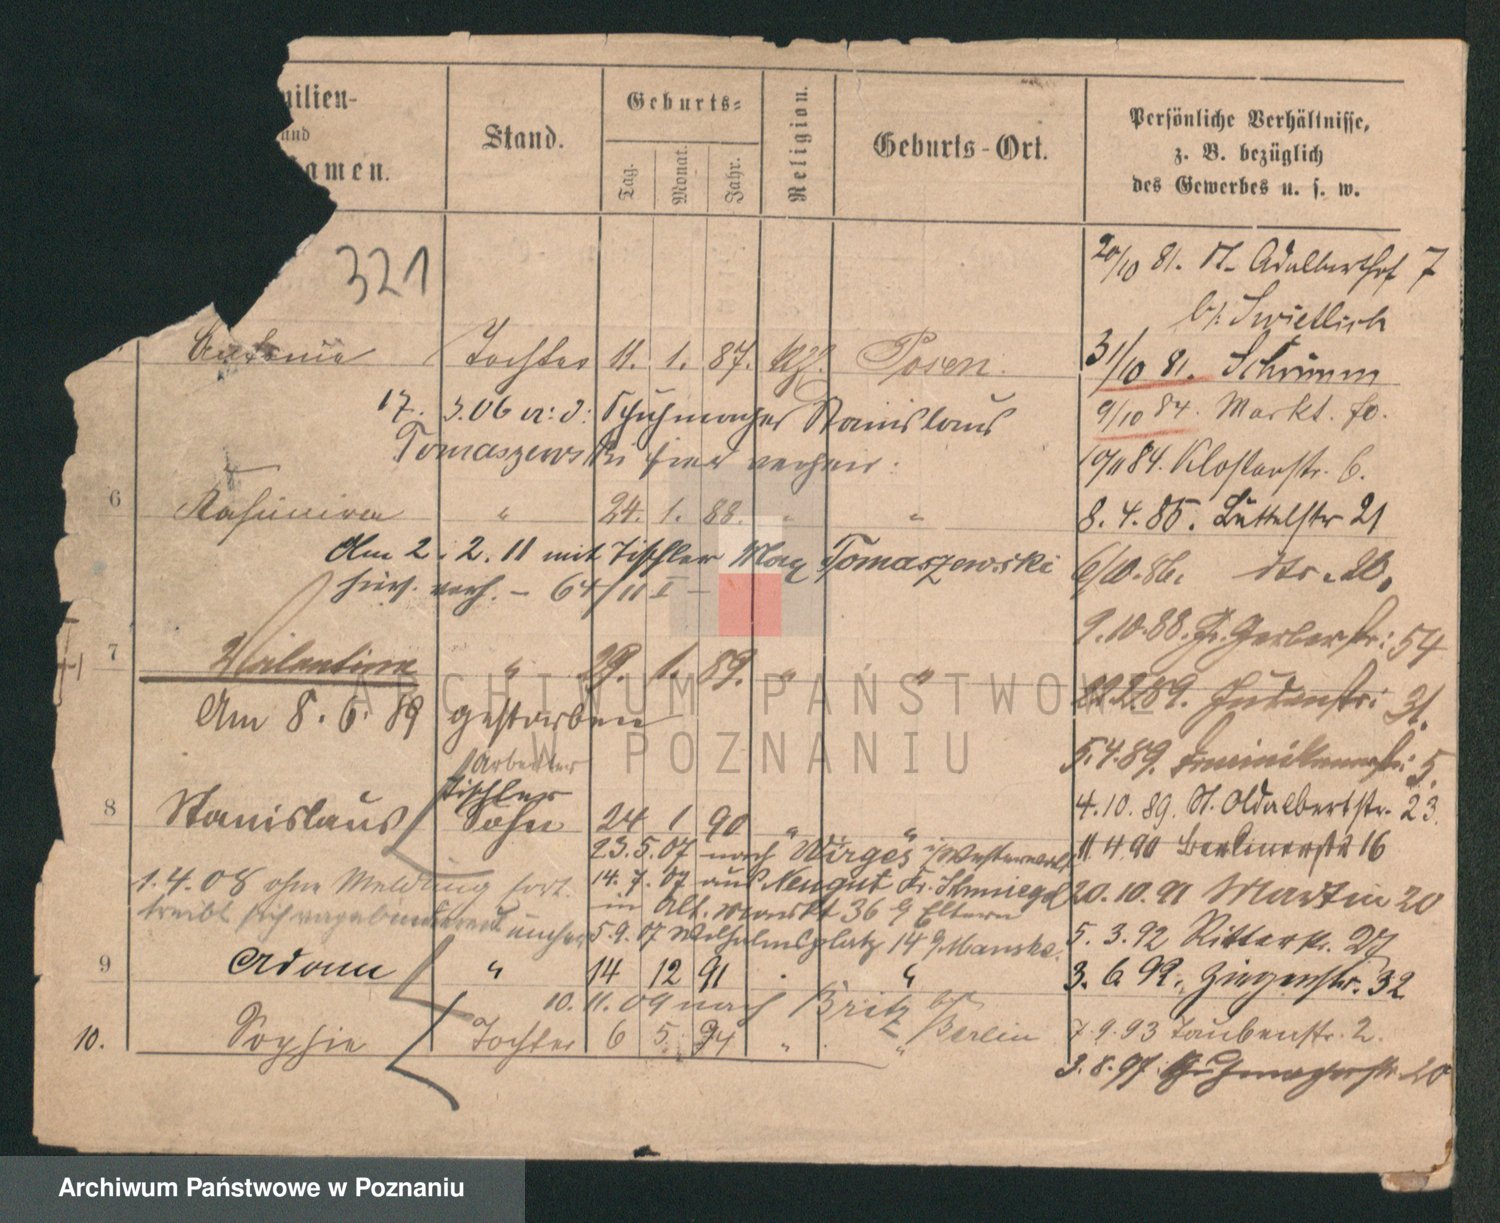 milien-
und
amen.
Stand.
Geburts-
Tag. Monat. Jahr.
Religion.
Geburts-Ort.
Persönliche Verhältnisse,
z. B. bezüglich
des Gewerbes u. s. w.
321
20/10 81. St. Adalbertstr 7
b/. Swietlich
Antonie Tochter 11. 1. 87. Posen.
31/10 81. Schrimm
17. 3.06 a: d: Schuhmacher Stanislaus
9/10 84. Markt.
Tomaszewski hier verheir:
84. Klosterstr. 6.
6 Kasimira " 24. 1. 88. " "
8. 4. 85. Büttelstr 21
Am 2. 2. 11 mit Tischler Max Tomaszewski
6/10. 86. dto. 20.
hier verh. – 64/11 I –
9. 10. 88. Gr. Gerberstr: 54
7 Valentine " 29. 1. 89. " "
89. Judenstr: 31.
Am 8. 6. 89 gestorben
5. 4. 89. Dominikanerstr: 5.
Arbeiter
Tischler
4. 10. 89. St. Adalbertstr. 23.
8 Stanislaus Sohn 24 1 90 " "
11 4 90 Berlinerstr 16
23. 5. 07 nach Wirges i/Westerwald
1. 4. 08 ohne Meldung fort.
14. 7. 07 aus Neugut Kr. Schmiegel
20. 10. 91 Martin 20
in Alt. Markt 36 b Eltern
treibt sich vagabundierend umher
5. 9. 07 Wilhelmsplatz 14 b Manske.
5. 3. 92 Ritterstr. 27
9 Adam " 14 12 91 "
3. 6. 92. Ziegenstr. 32
10. 11. 09 nach Britz b/
Berlin
10. Sophie Tochter 6 5. 94 " "
7. 9. 93 Taubenstr. 2.
3. 8. 97. Schuhmacherstr. 20
ARCHIWUM PAŃSTWOWE
W POZNANIU
Archiwum Państwowe w Poznaniu